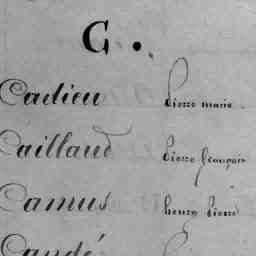 C.
Cadieu pierre marie
Caillaud pierre françois
Camus henry pierre
Candé